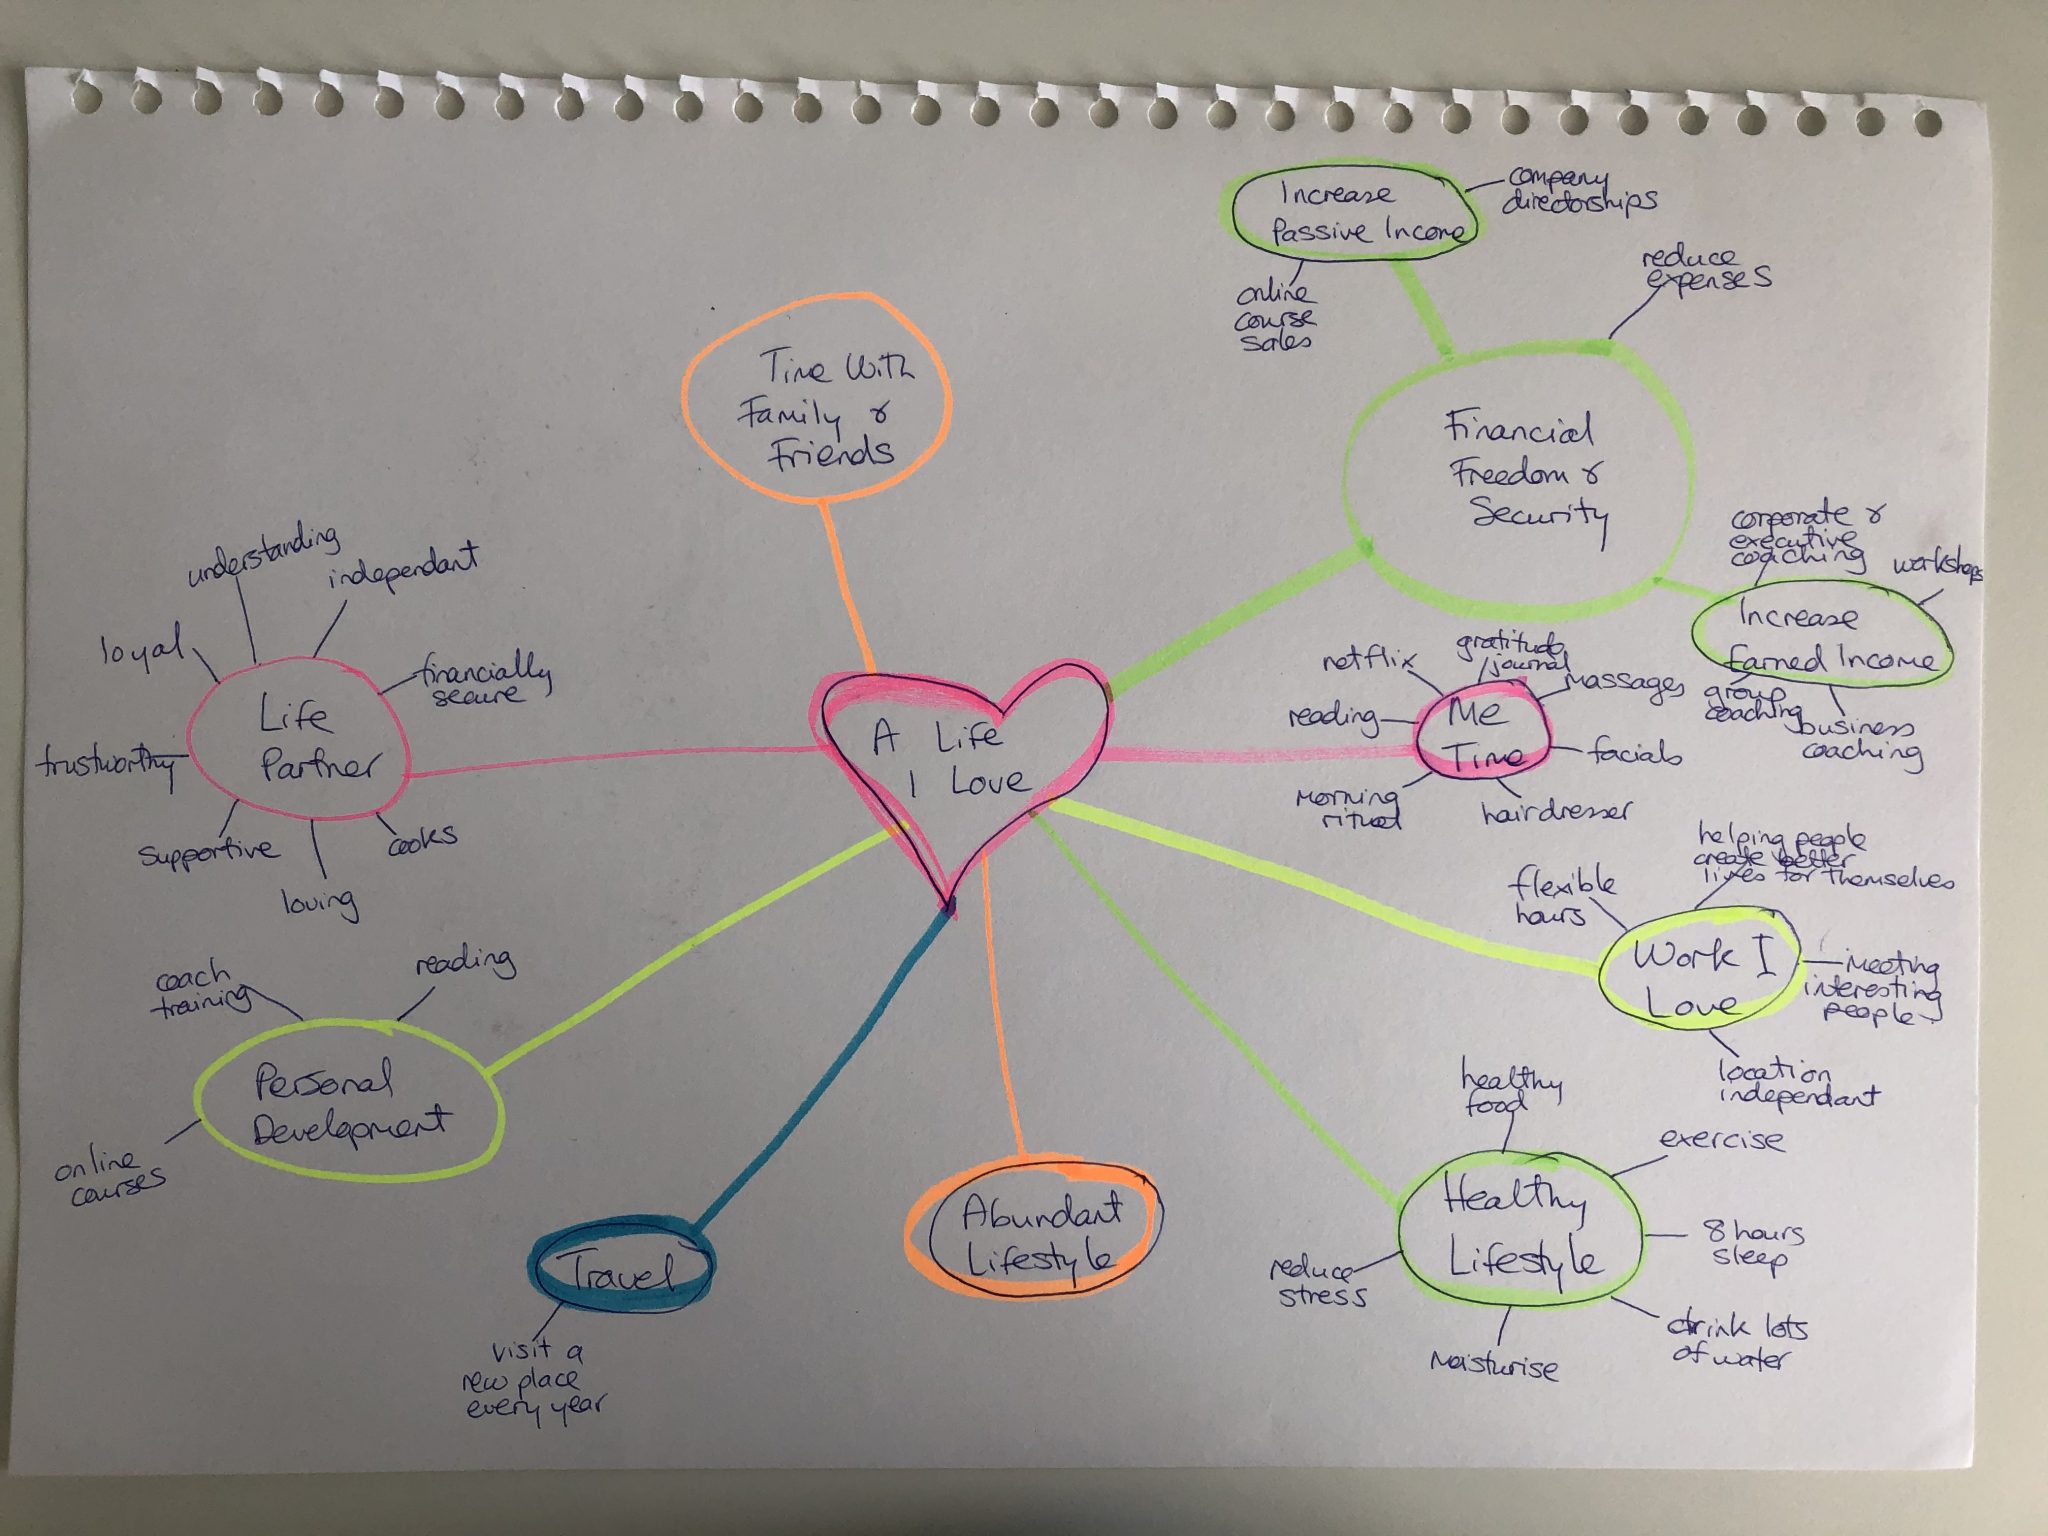 A Life
I Love
Time With
Family &
Friends
Financial
Freedom &
Security
Increase
Passive Income
company
directorships
online
course
sales
reduce
expenses
Increase
Earned Income
corporate &
executive
coaching
workshops
group
coaching
business
coaching
Me
Time
netflix
gratitude
journal
massages
facials
hairdresser
morning
ritual
reading
Work I
Love
flexible
hours
helping people
create better
lives for themselves
meeting
interesting
people
location
independant
Healthy
Lifestyle
healthy
food
exercise
8 hours
sleep
drink lots
of water
moisturise
reduce
stress
Abundant
Lifestyle
Travel
visit a
new place
every year
Personal
Development
coach
training
reading
online
courses
Life
Partner
understanding
independant
financially
secure
cooks
loving
supportive
trustworthy
loyal